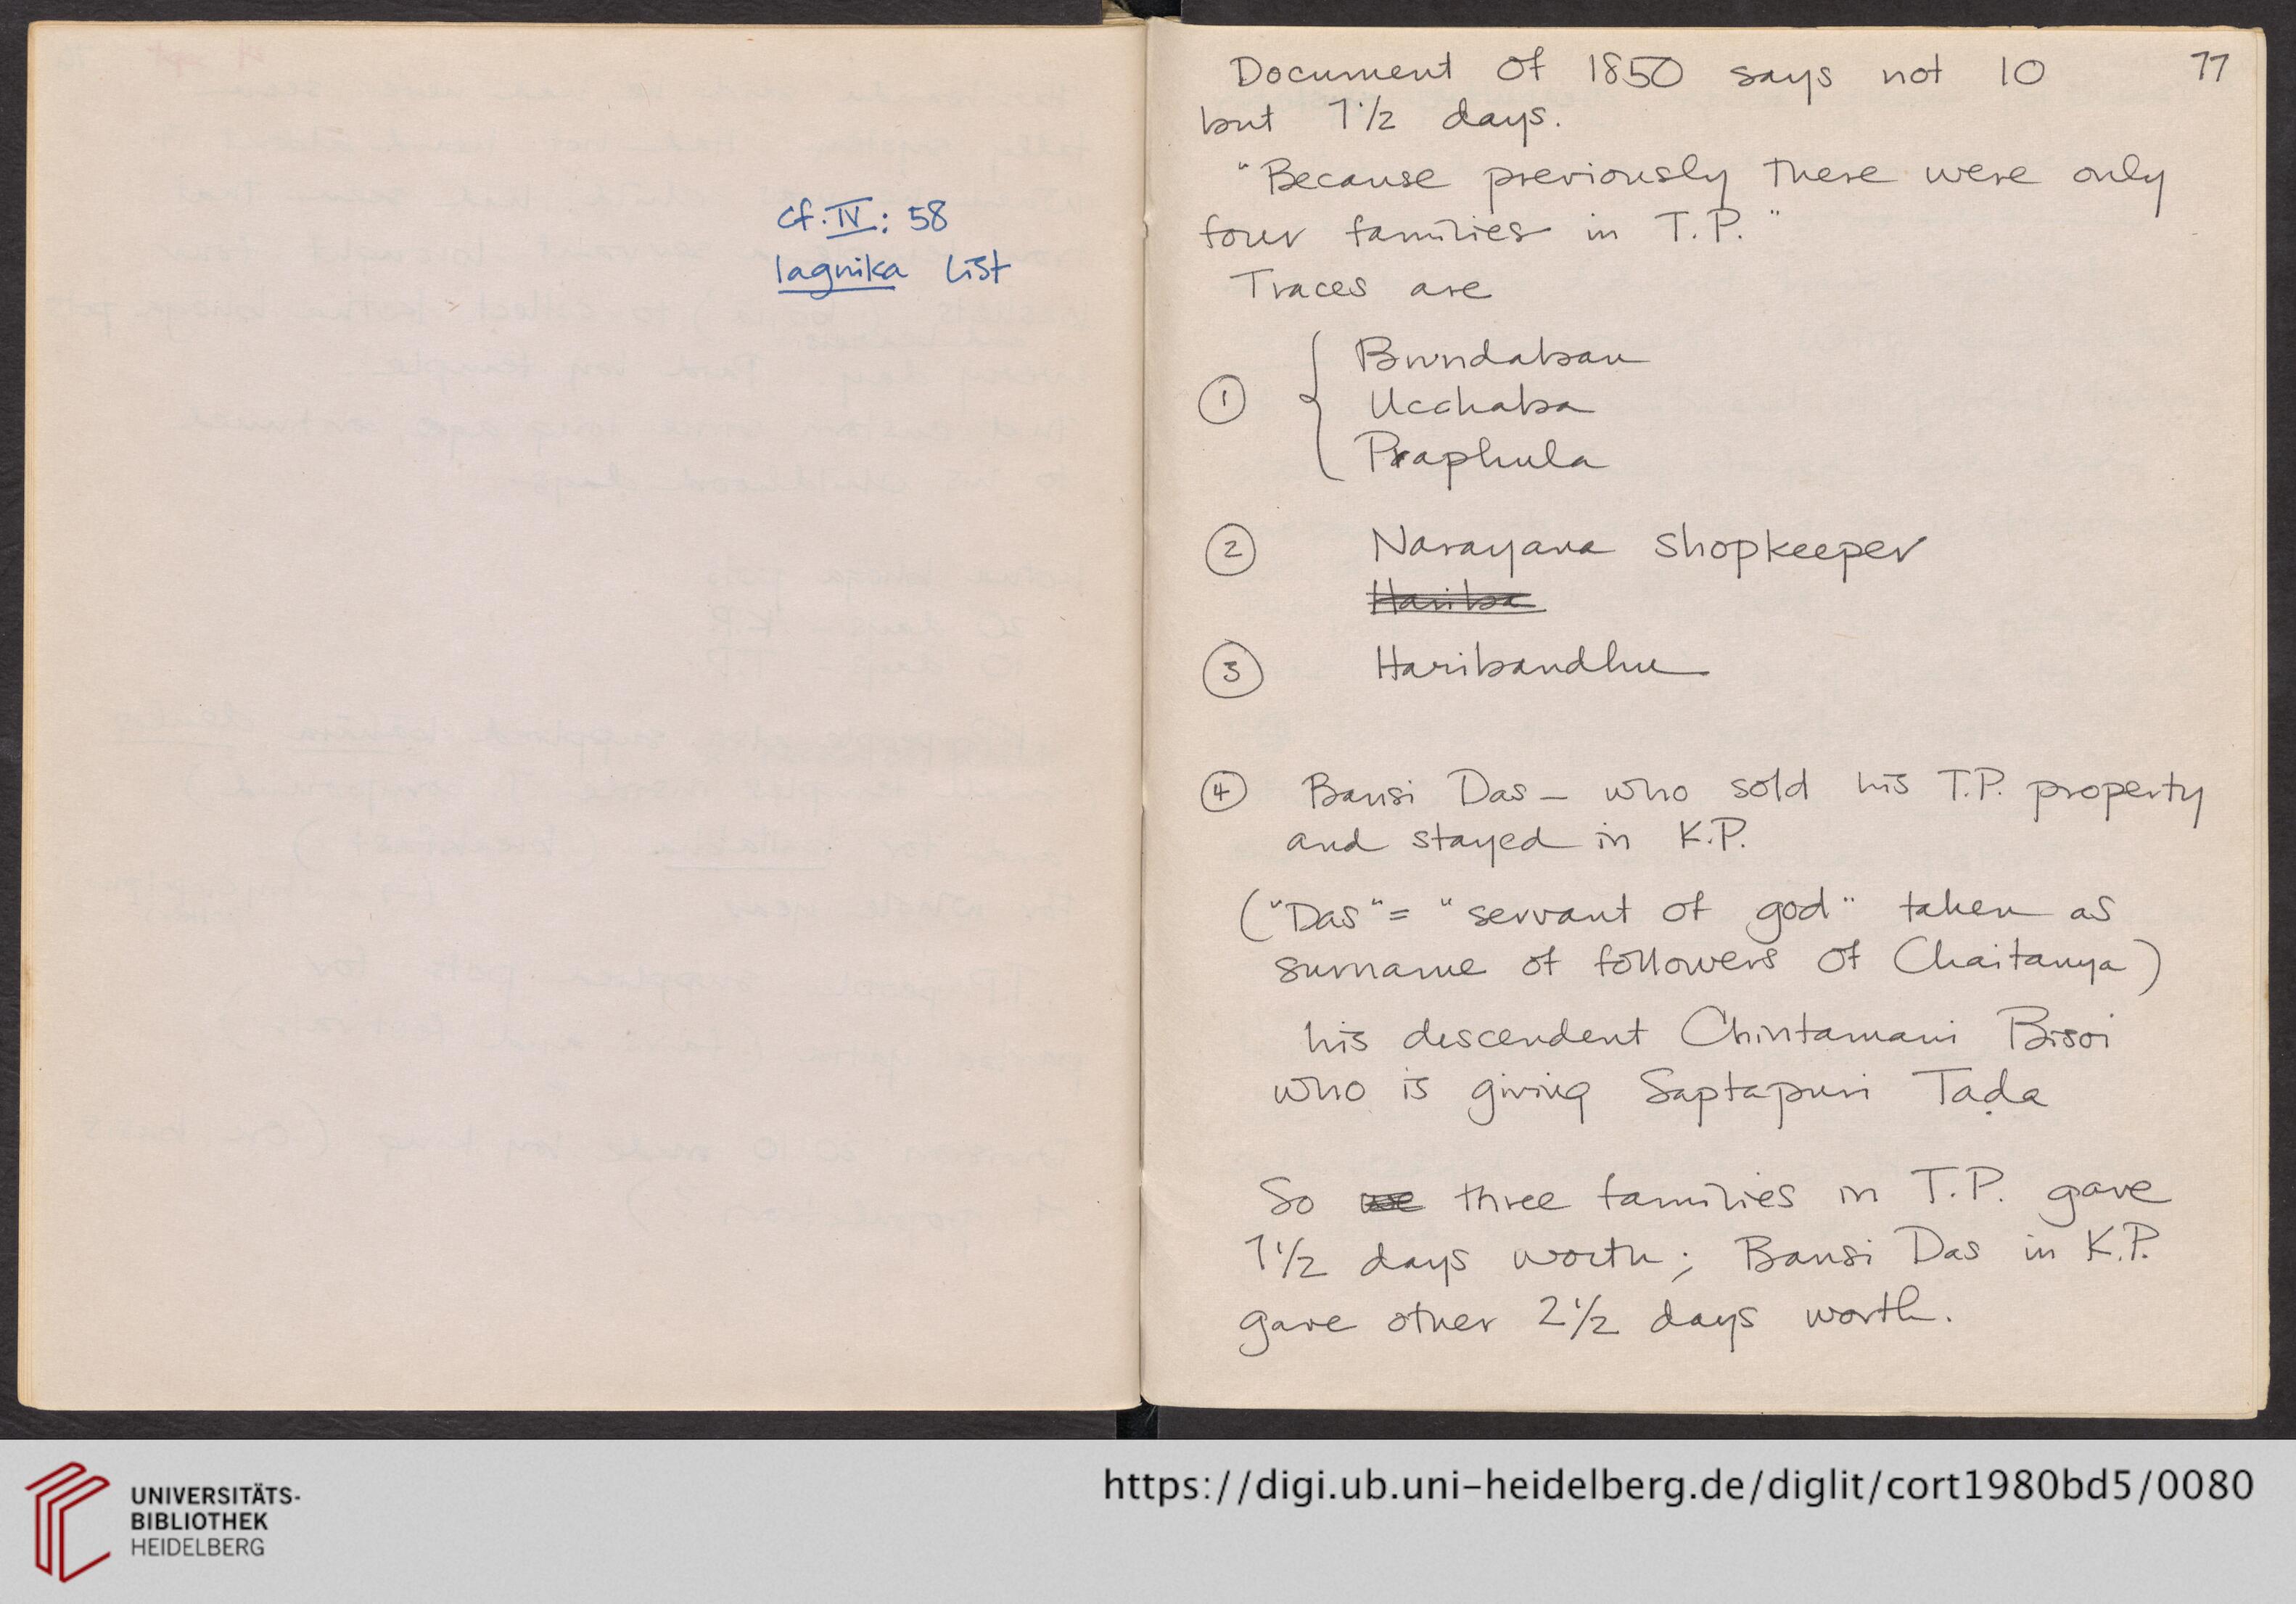 cf. IV: 58
lagnika list
77
Document of 1850 says not 10
but 7 1/2 days.
"Because previously there were only
four families in T.P."
Traces are
① { Brundaban
Ucchaba
Praphula
② Narayana shopkeeper
Hariba
③ Haribandhu
④ Bansi Das – who sold his T.P. property
and stayed in K.P.
("Das" = "servant of god" taken as
surname of followers of Chaitanya)
his descendent Chintamani Bisoi
who is giving Saptapuri Taḍa
So three families in T.P. gave
7 1/2 days worth; Bansi Das in K.P.
gave other 2 1/2 days worth.
UNIVERSITÄTS-
BIBLIOTHEK
HEIDELBERG
https://digi.ub.uni-heidelberg.de/diglit/cort1980bd5/0080